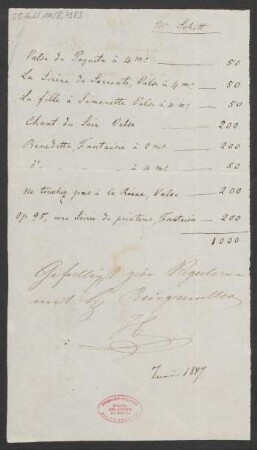 Mr Schott
Valse de Paquita à 4 ms. — 50
La Sirène de Sorrente, Valse à 4 ms — 50
La fille à Simonette Valse à 4 ms. — 50
Chant du Soir Valse — 200
Benedetta, Fantaisie à 2 ms. — 200
do — à 4 ms. — 50
Ne touchez pas à la Reine, Valse — 200
Op 95, une Soirée de printems, Fantaisie — 200
1000
Gefälligst zur
mit Burgmüller
Juni 1847